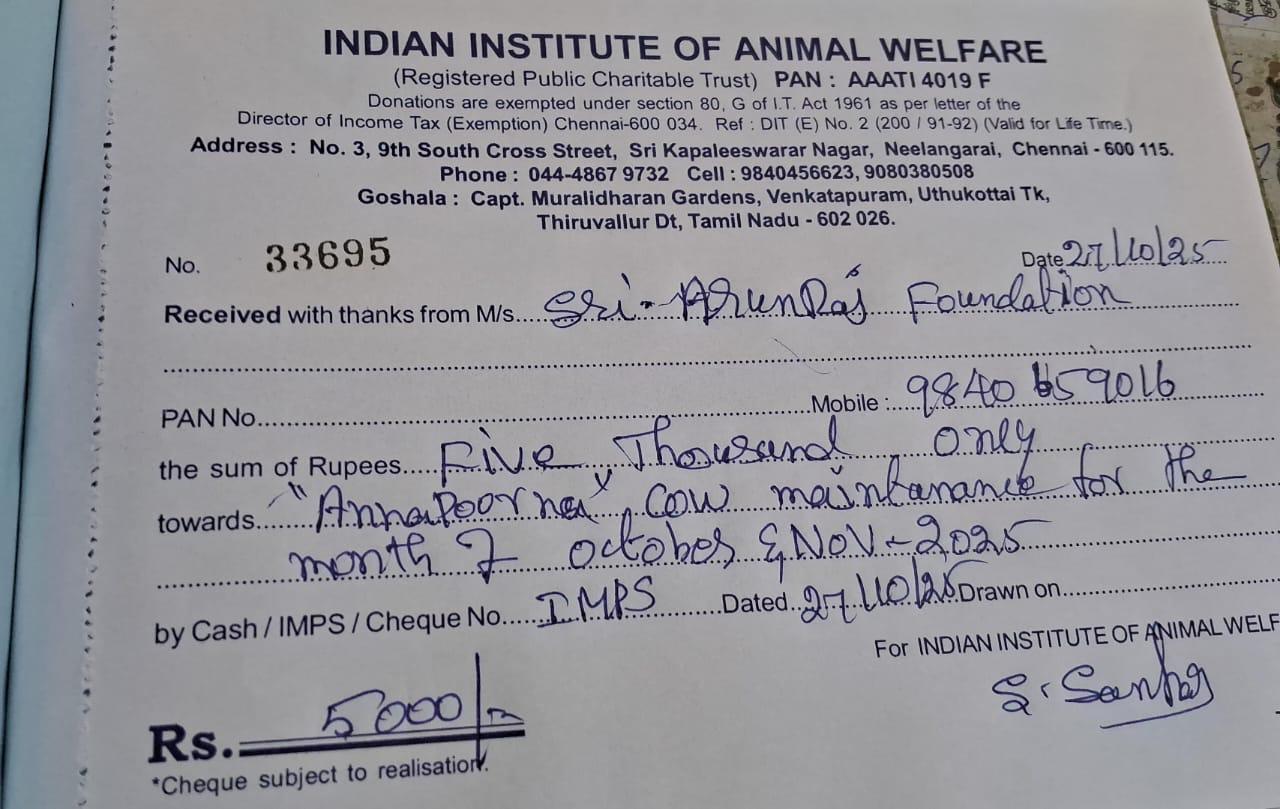 INDIAN INSTITUTE OF ANIMAL WELFARE
(Registered Public Charitable Trust) PAN : AAATI 4019 F
Donations are exempted under section 80, G of I.T. Act 1961 as per letter of the
Director of Income Tax (Exemption) Chennai-600 034. Ref : DIT (E) No. 2 (200 / 91-92) (Valid for Life Time.)
Address : No. 3, 9th South Cross Street, Sri Kapaleeswarar Nagar, Neelangarai, Chennai - 600 115.
Phone : 044-4867 9732 Cell : 9840456623, 9080380508
Goshala : Capt. Muralidharan Gardens, Venkatapuram, Uthukottai Tk,
Thiruvallur Dt, Tamil Nadu - 602 026.
No. 33695 Date 27/10/25
Received with thanks from M/s. Sri-ArunRaj Foundation
PAN No. Mobile : 9840 659016
the sum of Rupees Five Thousand only
towards "Annapoorna" Cow maintanance for the
month of october & Nov-2025
by Cash / IMPS / Cheque No. IMPS Dated 27/10/25 Drawn on
For INDIAN INSTITUTE OF ANIMAL WELF
Rs. 5000/-
*Cheque subject to realisation.